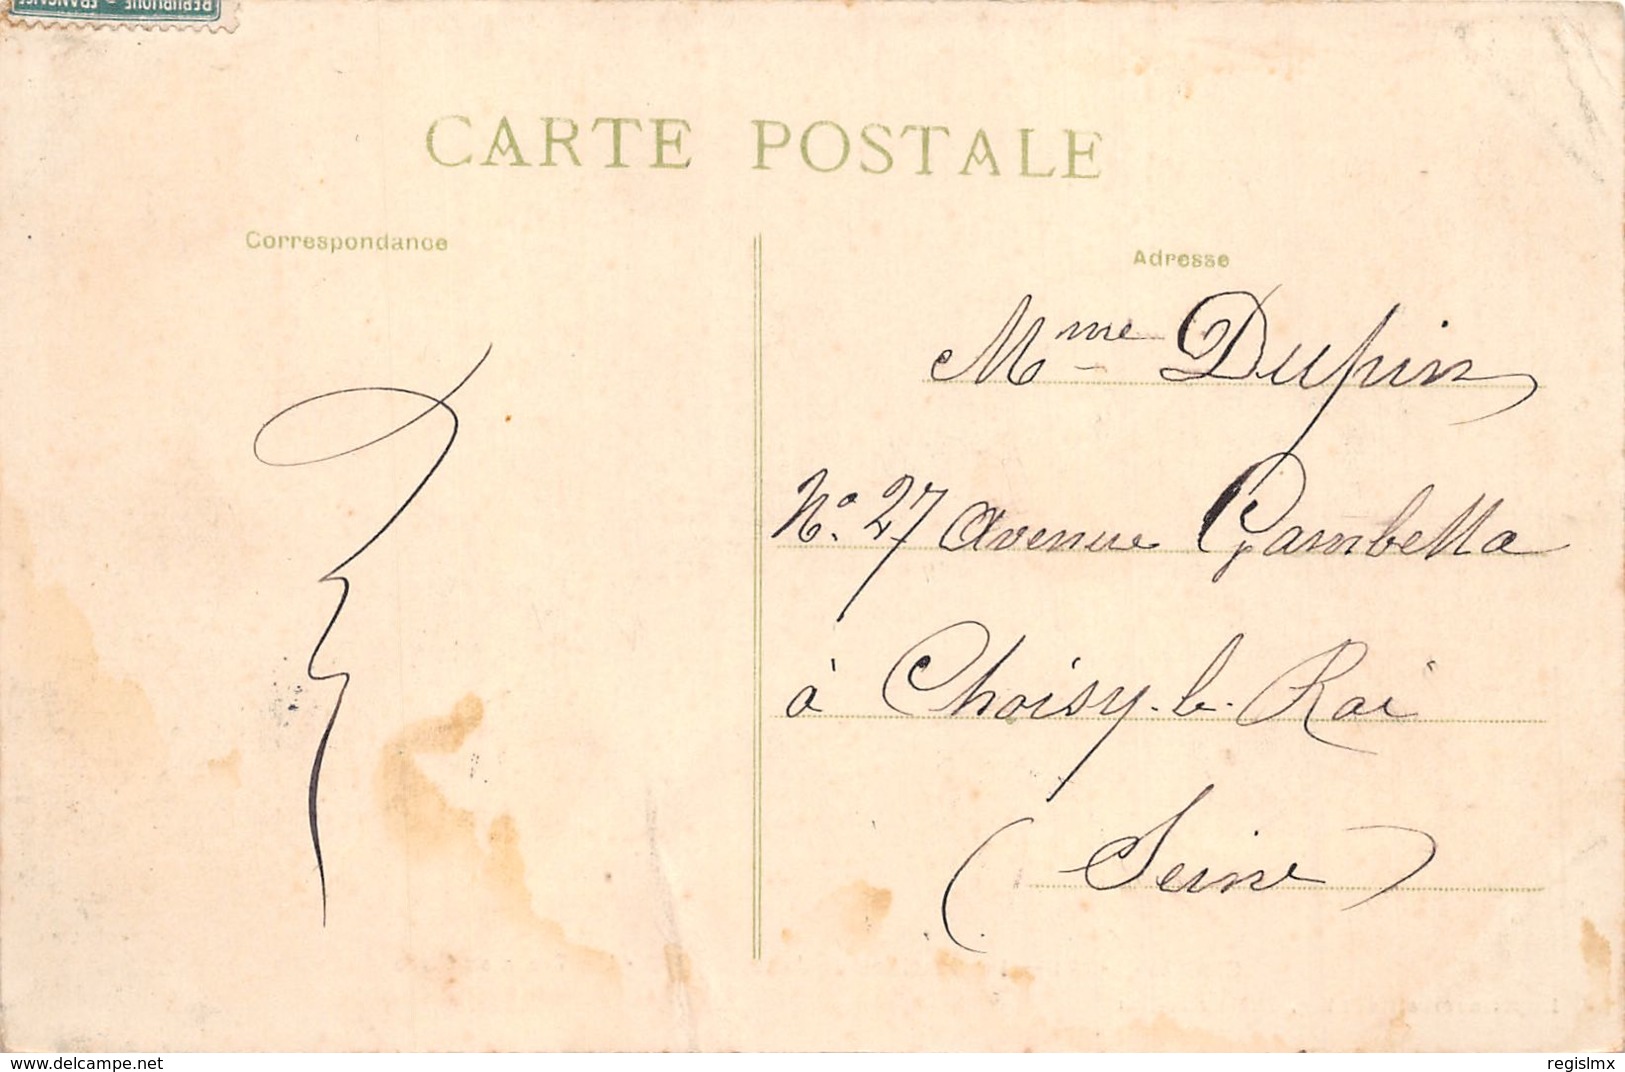 RÉPUBLIQUE FRANÇAISE
CARTE POSTALE
Correspondance
Adresse
Mme Dupin
No. 27 Avenue Gambetta
à Choisy-le-Roi
(Seine)
www.delcampe.net
regislmx